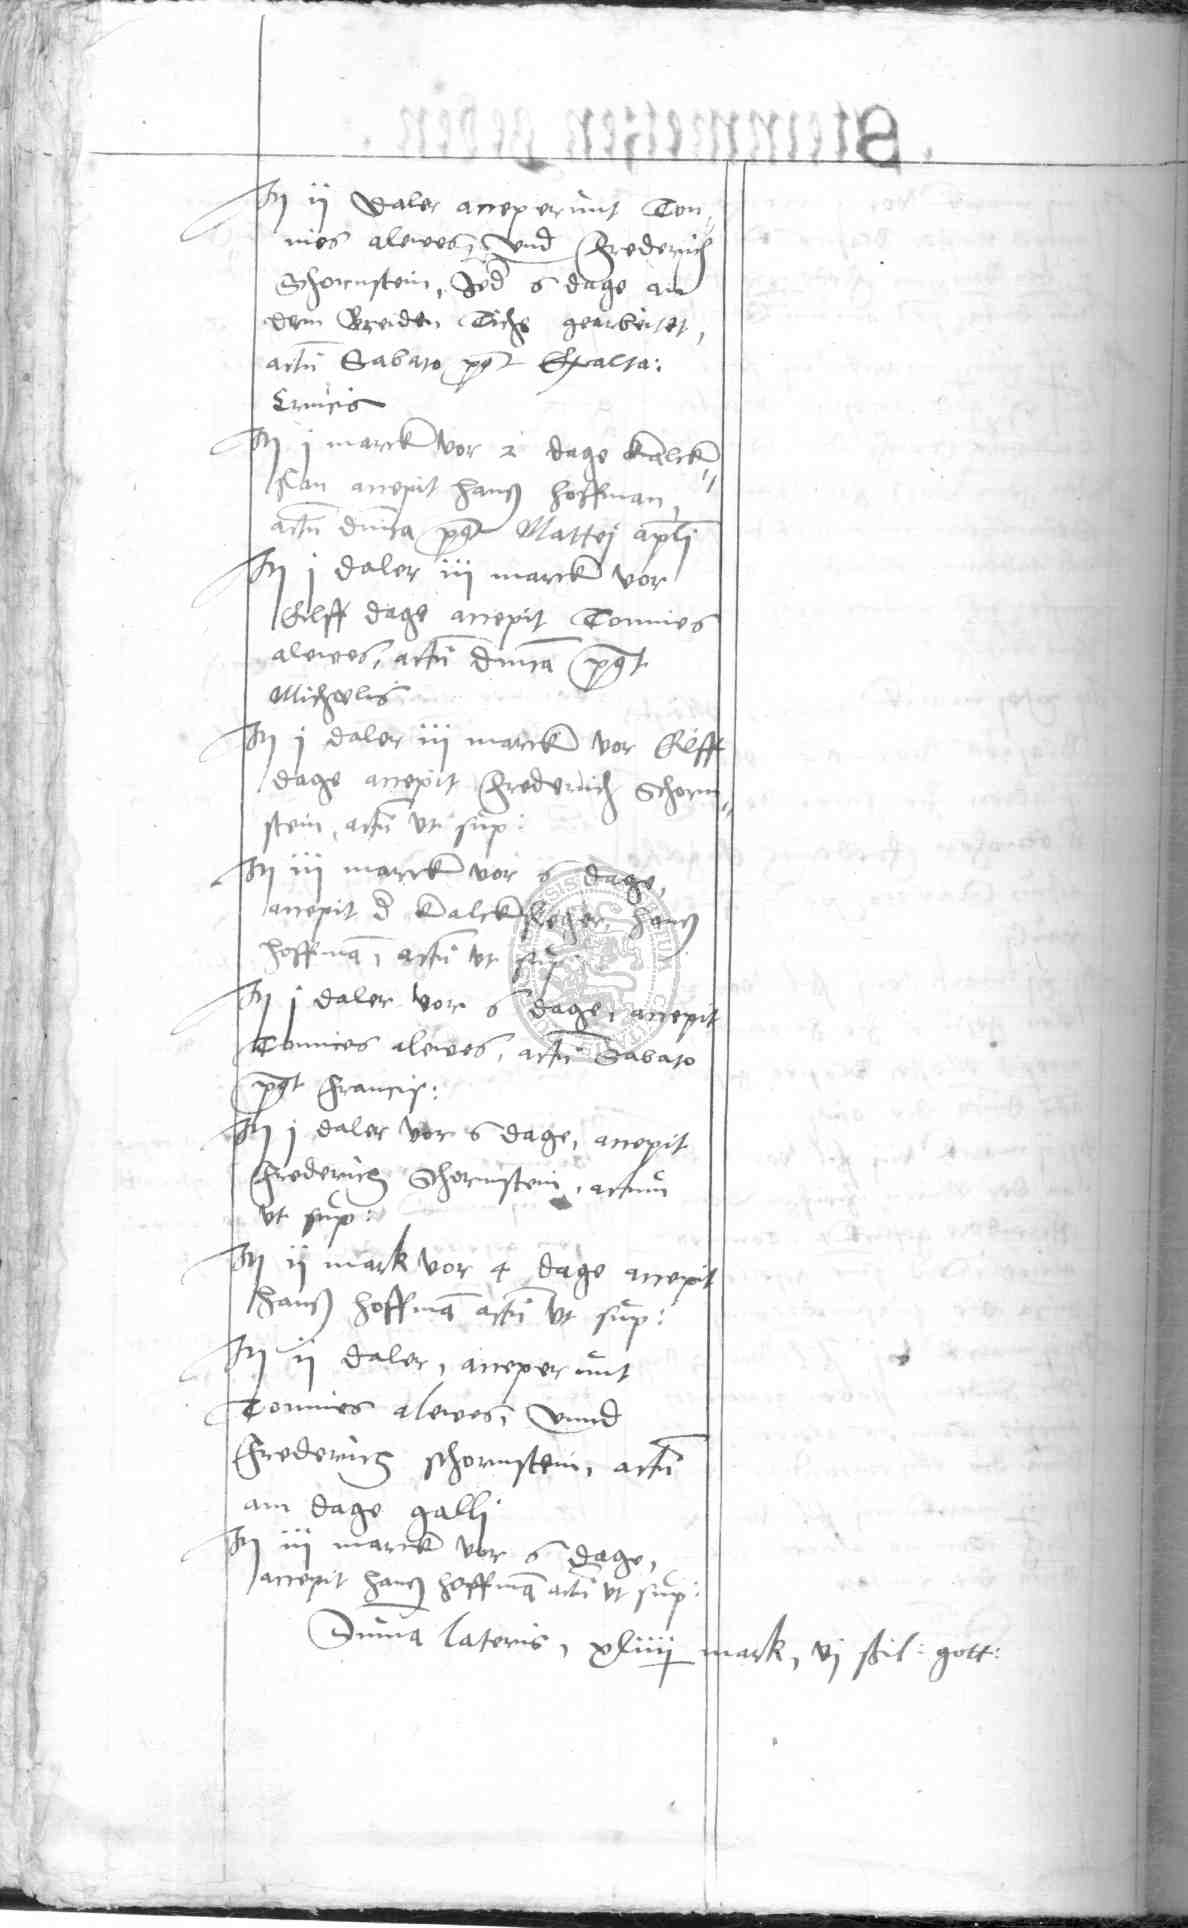 It ij Daler acceperunt Ton,,
nies alewes, Vnd Frederich
Schornstein, Jed 6 dage an
dem Breiden Tichs gearbeitet,
actũ Sabato pqt Exalta:
Crucis
It j marck vor 2 dage kalck,,
slan accepit Hanß Hoffman,
actũ dmca pqt Mattej apli
It j daler iij marck vor
Elff dage accepit Tonnies
alewes, actũ dmca pqt
Michaelis
It j daler iij marck vor Elff
dage accepit Frederich Schorn,,
stein, actũ vt sup:
It iij marck vor 6 dage,
accepit d kalcksleger, Hanß
Hoffmã, actũ vt sup:
It j daler vor 6 dage, accepit
Tonnies alewes, actũ Sabato
pqt Francis:
It j daler vor 6 dage, accepit
Frederich Schornstein, actum
vt sup:
It ij mark vor 4 dage accepit
Hanß Hoffmã actũ vt sup:
It ij daler, acceperunt
Tonnies alewes, vnnd
Frederich schornstein, actũ
am dage galli
It iij marck vor 6 dage,
accepit Hanß Hoffmã actũ vt sup:
Suma lateris, xliiij mark, vj ßil: gott: